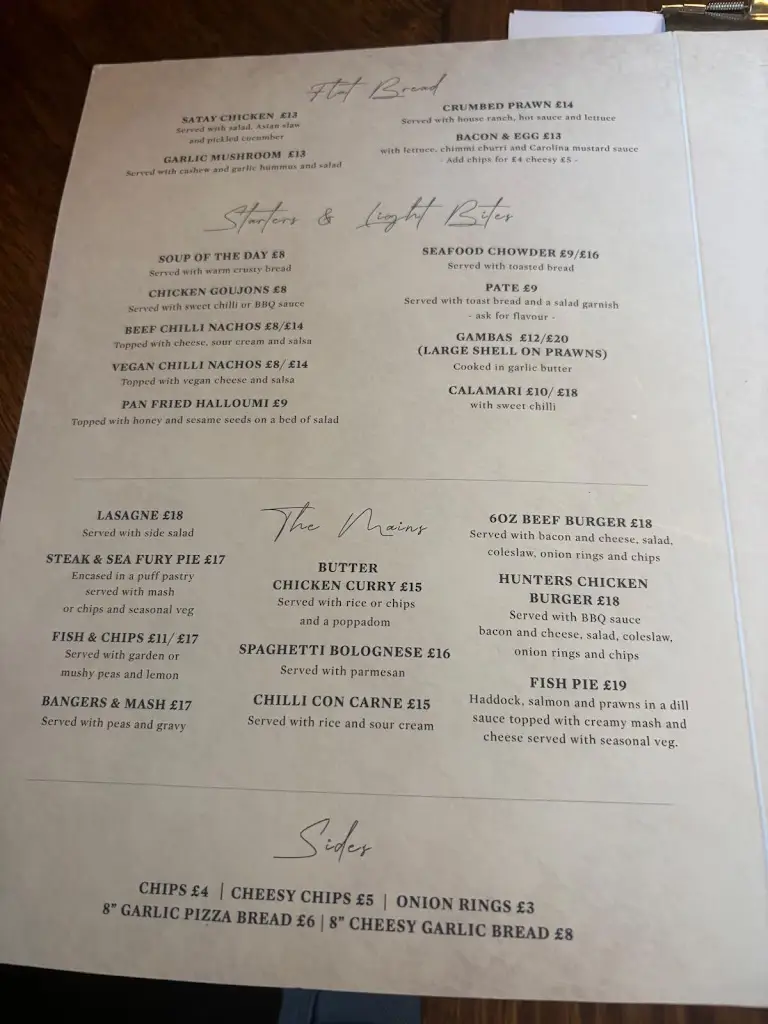 Flat Bread
SATAY CHICKEN £13
Served with salad, Asian slaw
and pickled cucumber
GARLIC MUSHROOM £13
Served with cashew and garlic hummus and salad
CRUMBED PRAWN £14
Served with house ranch, hot sauce and lettuce
BACON & EGG £13
with lettuce, chimmi churri and Carolina mustard sauce
- Add chips for £4 cheesy £5 -
Starters & Light Bites
SOUP OF THE DAY £8
Served with warm crusty bread
CHICKEN GOUJONS £8
Served with sweet chilli or BBQ sauce
BEEF CHILLI NACHOS £8/£14
Topped with cheese, sour cream and salsa
VEGAN CHILLI NACHOS £8/ £14
Topped with vegan cheese and salsa
PAN FRIED HALLOUMI £9
Topped with honey and sesame seeds on a bed of salad
SEAFOOD CHOWDER £9/£16
Served with toasted bread
PATE £9
Served with toast bread and a salad garnish
- ask for flavour -
GAMBAS £12/£20
(LARGE SHELL ON PRAWNS)
Cooked in garlic butter
CALAMARI £10/ £18
with sweet chilli
The Mains
LASAGNE £18
Served with side salad
STEAK & SEA FURY PIE £17
Encased in a puff pastry
served with mash
or chips and seasonal veg
FISH & CHIPS £11/ £17
Served with garden or
mushy peas and lemon
BANGERS & MASH £17
Served with peas and gravy
BUTTER
CHICKEN CURRY £15
Served with rice or chips
and a poppadom
SPAGHETTI BOLOGNESE £16
Served with parmesan
CHILLI CON CARNE £15
Served with rice and sour cream
6OZ BEEF BURGER £18
Served with bacon and cheese, salad,
coleslaw, onion rings and chips
HUNTERS CHICKEN
BURGER £18
Served with BBQ sauce
bacon and cheese, salad, coleslaw,
onion rings and chips
FISH PIE £19
Haddock, salmon and prawns in a dill
sauce topped with creamy mash and
cheese served with seasonal veg.
Sides
CHIPS £4 | CHEESY CHIPS £5 | ONION RINGS £3
8" GARLIC PIZZA BREAD £6 | 8" CHEESY GARLIC BREAD £8